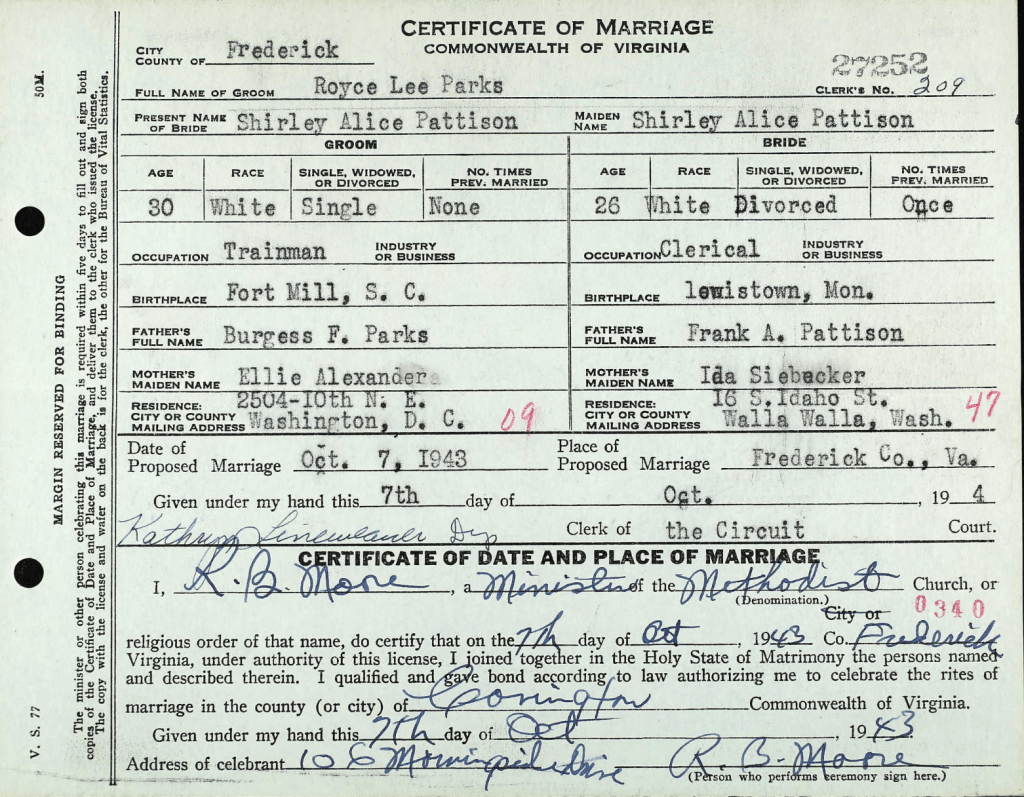 CERTIFICATE OF MARRIAGE
COMMONWEALTH OF VIRGINIA
CITY
COUNTY OF Frederick
27252
FULL NAME OF GROOM Royce Lee Parks CLERK'S NO. 209
PRESENT NAME OF BRIDE Shirley Alice Pattison MAIDEN NAME Shirley Alice Pattison
GROOM BRIDE
AGE RACE SINGLE, WIDOWED, OR DIVORCED NO. TIMES PREV. MARRIED AGE RACE SINGLE, WIDOWED, OR DIVORCED NO. TIMES PREV. MARRIED
30 White Single None 26 White Divorced Once
OCCUPATION Trainman INDUSTRY OR BUSINESS OCCUPATION Clerical INDUSTRY OR BUSINESS
BIRTHPLACE Fort Mill, S. C. BIRTHPLACE lewistown, Mon.
FATHER'S FULL NAME Burgess F. Parks FATHER'S FULL NAME Frank A. Pattison
MOTHER'S MAIDEN NAME Ellie Alexander MOTHER'S MAIDEN NAME Ida Siebecker
RESIDENCE: 2504-10th N. E. RESIDENCE: 16 S.Idaho St.
CITY OR COUNTY MAILING ADDRESS Washington, D. C. 09 CITY OR COUNTY MAILING ADDRESS Walla Walla, Wash. 47
Date of Proposed Marriage Oct. 7, 1943 Place of Proposed Marriage Frederick Co., Va.
Given under my hand this 7th day of Oct. , 19 4
Kathryn Lineweaver Dep Clerk of the Circuit Court.
CERTIFICATE OF DATE AND PLACE OF MARRIAGE
I, R. B. Moore , a Minister of the Methodist Church, or
(Denomination.)
City or 0340
religious order of that name, do certify that on the 7th day of Oct , 1943 Co. Frederick
Virginia, under authority of this license, I joined together in the Holy State of Matrimony the persons named
and described therein. I qualified and gave bond according to law authorizing me to celebrate the rites of
marriage in the county (or city) of Covington Commonwealth of Virginia.
Given under my hand this 7th day of Oct , 1943
Address of celebrant 106 Morningside Drive R. B. Moore
(Person who performs ceremony sign here.)
50M.
MARGIN RESERVED FOR BINDING
The minister or other person celebrating this marriage is required within five days to fill out and sign both
copies of the Certificate of Date and Place of Marriage, and deliver them to the clerk who issued the license.
The copy with the license and wafer on the back is for the clerk, the other for the Bureau of Vital Statistics.
V. S. 77